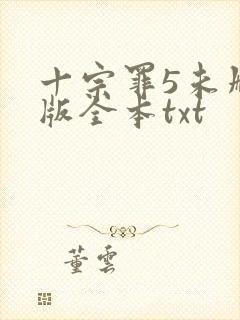 十宗罪5未
版全本txt
董雲